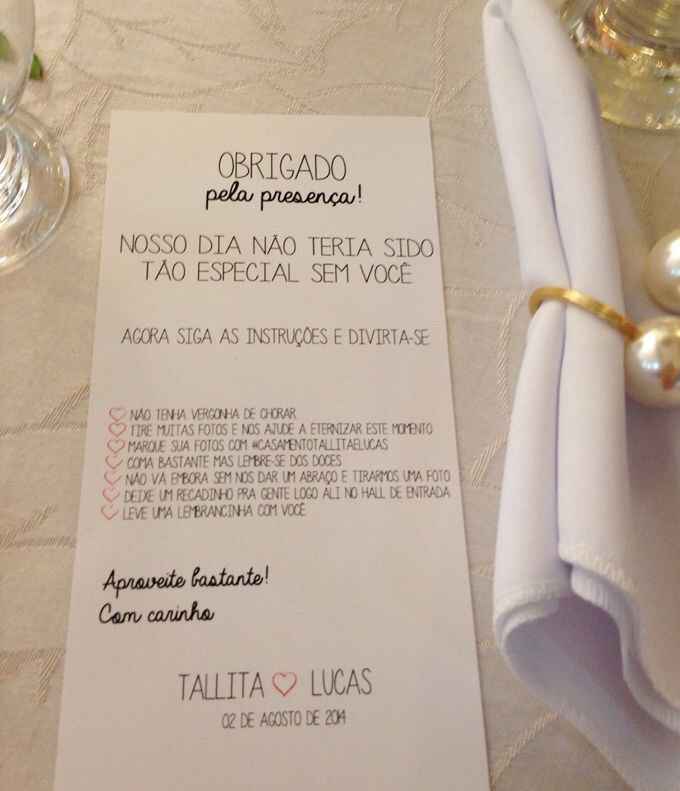 OBRIGADO
pela presença!
NOSSO DIA NÃO TERIA SIDO
TÃO ESPECIAL SEM VOCÊ
AGORA SIGA AS INSTRUÇÕES E DIVIRTA-SE
NÃO TENHA VERGONHA DE CHORAR
TIRE MUITAS FOTOS E NOS AJUDE A ETERNIZAR ESTE MOMENTO
MARQUE SUA FOTOS COM #CASAMENTOTALLITAELUCAS
COMA BASTANTE MAS LEMBRE-SE DOS DOCES
NÃO VÁ EMBORA SEM NOS DAR UM ABRAÇO E TIRARMOS UMA FOTO
DEIXE UM RECADINHO PRA GENTE LOGO ALI NO HALL DE ENTRADA
LEVE UMA LEMBRANCINHA COM VOCÊ
Aproveite bastante!
Com carinho
TALLITA LUCAS
02 DE AGOSTO DE 2014